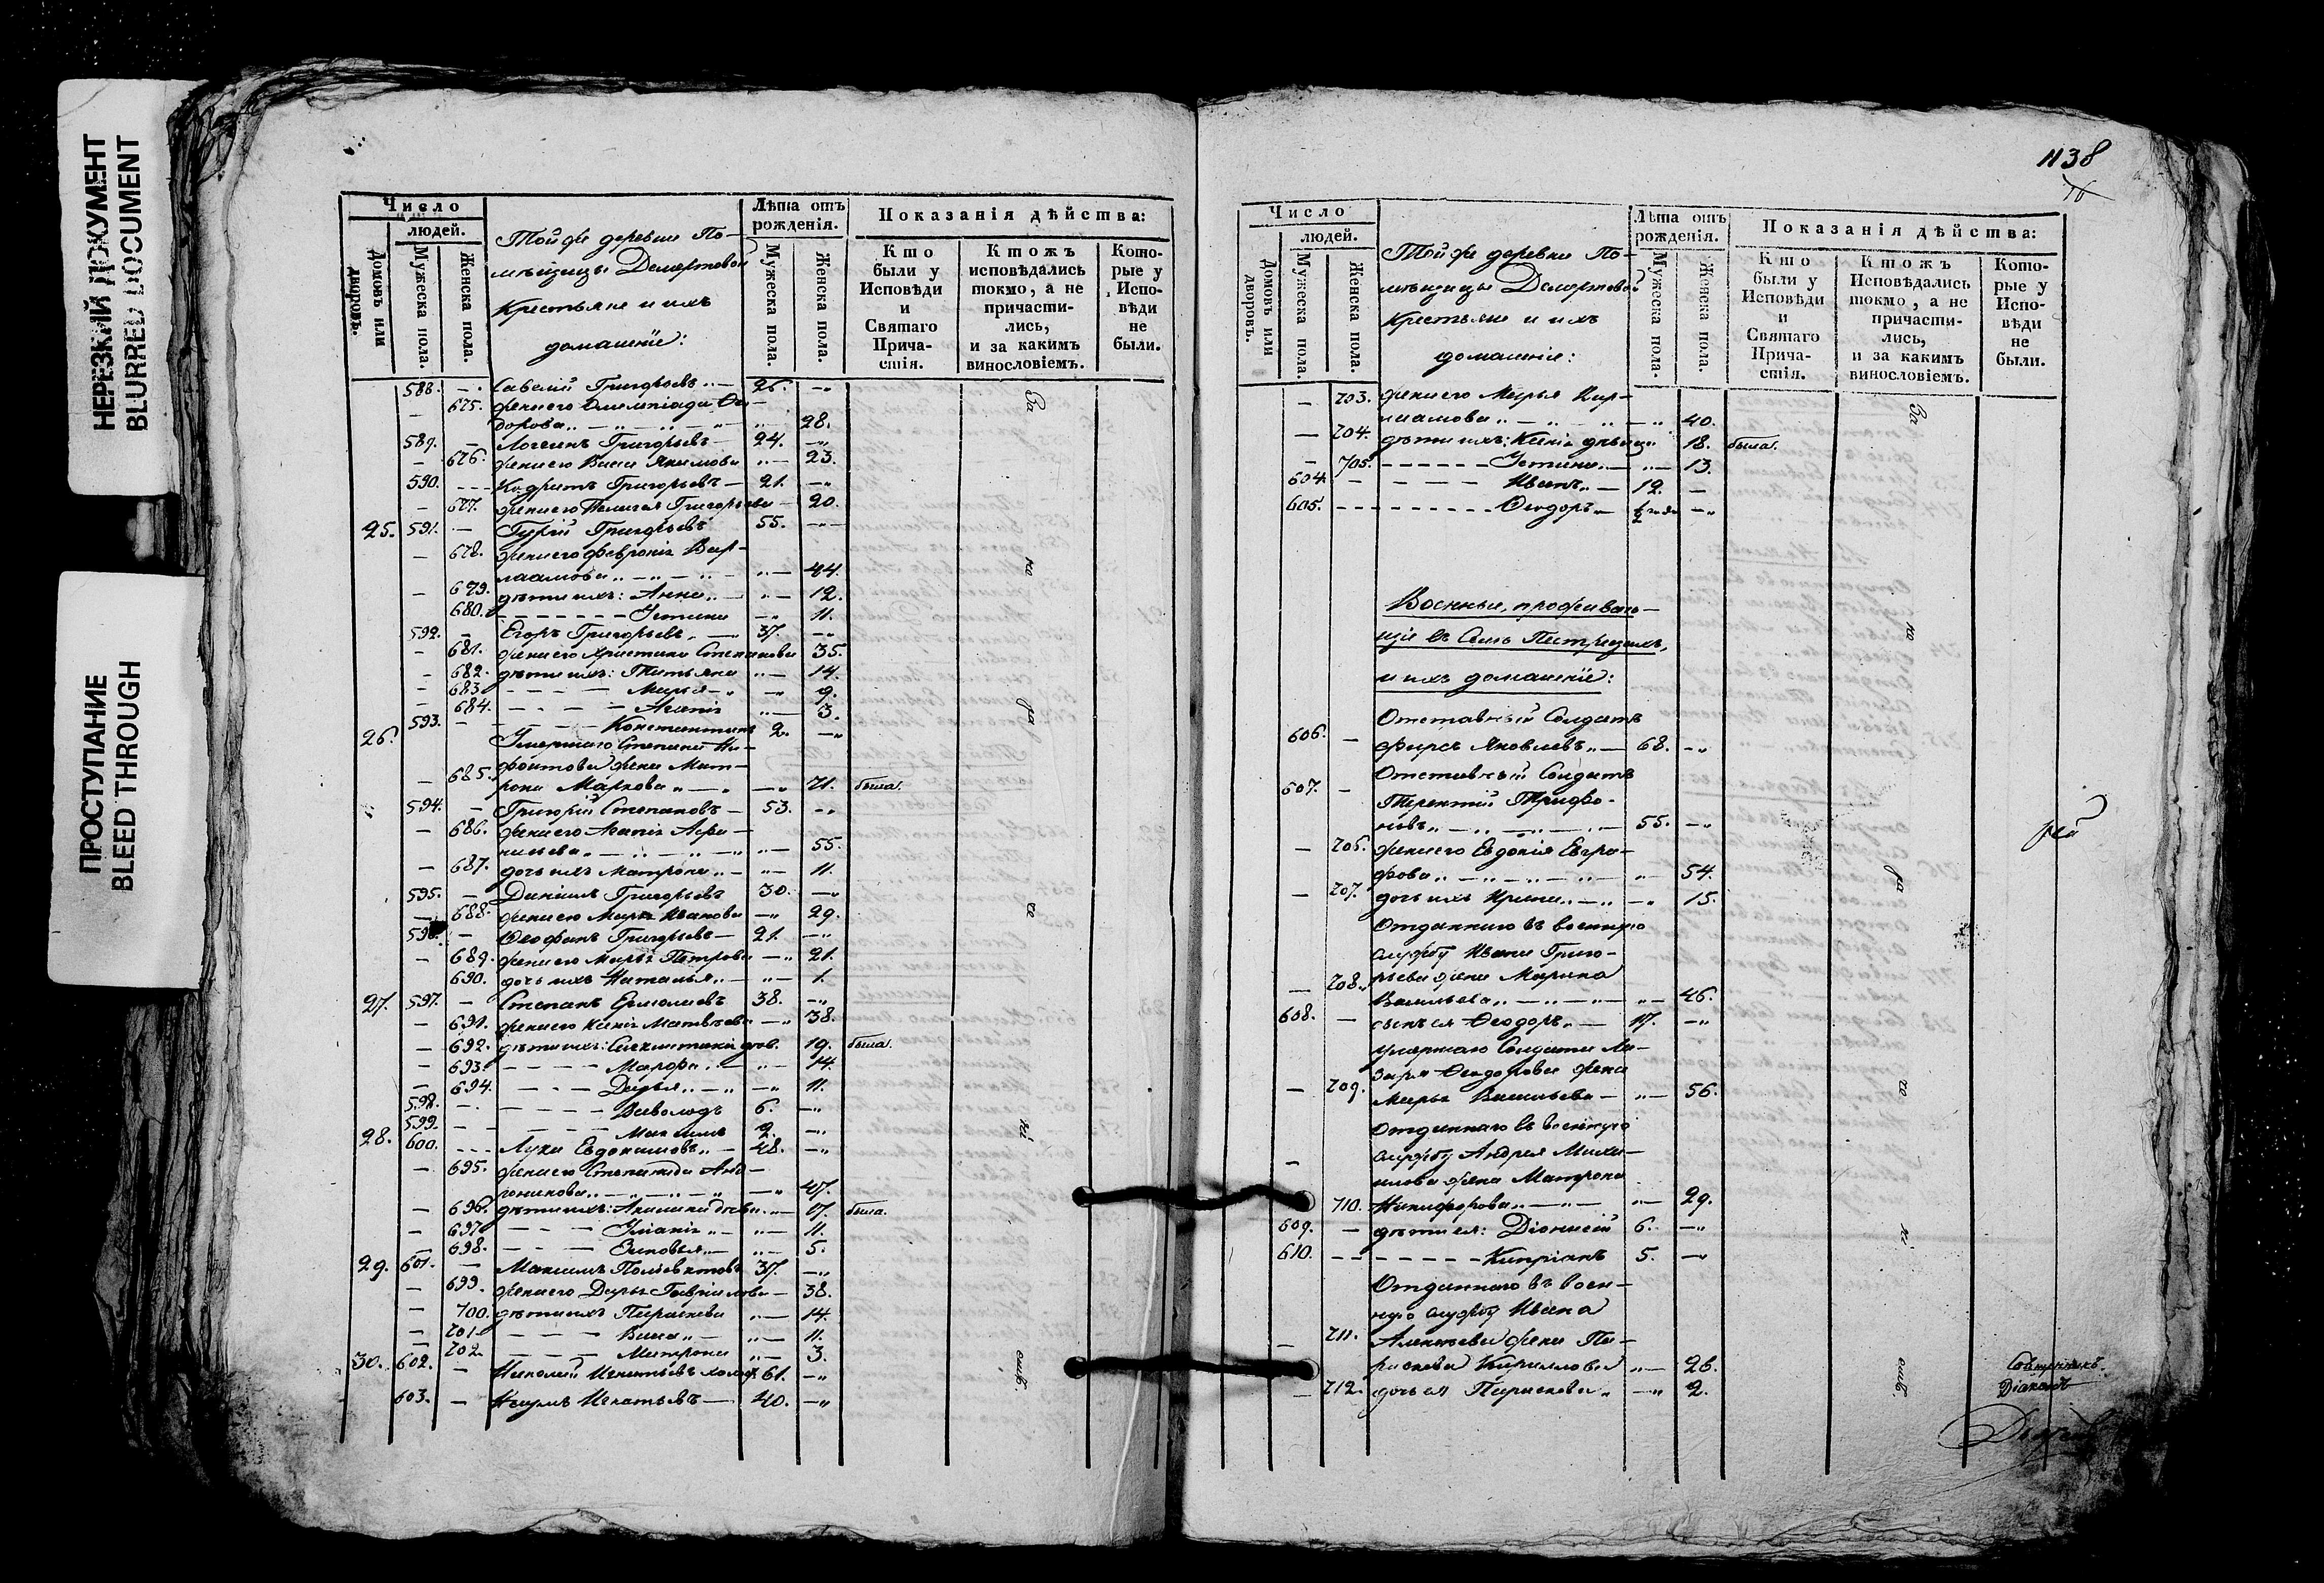 НЕРЕЗКИЙ ДОКУМЕНТ
BLURRED DOCUMENT
ПРОСТУПАНИЕ
BLEED THROUGH
Число
людей.
Домовъ или дворовъ.
Мужеска пола.
Женска пола.
Той же деревни По-
мѣщицы
Крестьяне и ихъ
домашніе:
Лѣта отъ рожденія.
Мужеска пола.
Женска пола.
Показанія дѣйства:
Кто были у Исповѣди и Святаго Прича-стія.
Ктожъ исповѣдались токмо, а не причасти-лись, и за какимъ винословіемъ.
Кото-рые у Испо-вѣди не были.
588. Савелій Григорьевъ 26.
675. жена его
дорова 28.
589. Логгинъ Григорьевъ 24.
676. жена его Васса Якимова 23.
590. Кодратъ Григорьевъ 21.
677. жена его Пелагея Григорьева 20.
25. 591. Гурій Григорьевъ 55.
678. жена его Февронія Вар-
лаамова 44.
679. дѣти ихъ: Анна 12.
680. Устинья 11.
592. Егоръ Григорьевъ 37.
681. жена его Христина Степанова 35.
682. дѣти ихъ: Татьяна 14.
683. Марья 9.
684. Агапія 3.
593. Константинъ 2.
26. Умершаго Степана
685. жена Мат-
рона Маркова 71. была.
594. Григорій Степановъ 53.
686. жена его Агапія Афа-
насьева 55.
687. дочь ихъ Матрона 11.
595. Даніилъ Григорьевъ 30.
688. жена его Марья Иванова 29.
596. Ѳеофанъ Григорьевъ 21.
689. жена его Марья Петрова 21.
690. дочь ихъ Наталья 1.
27. 597. Степанъ Ермолаевъ 38.
691. жена его Ксенія Матвѣева 38.
692. дѣти ихъ: дев. 19. была.
693. Марфа 14.
694. Дарья 11.
598. Всеволодъ 6.
599. Максимъ 2.
28. 600. Лука Евдокимовъ 48.
695. жена его Степанида Анд-
роникова 47.
696. дѣти ихъ: Акилина 17. была.
697. Уліанія 11.
698. Зиновья 5.
29. 601. Максимъ Поліевктовъ 37.
699. жена его Дарья Гавриилова 38.
700. дѣти ихъ Параскева 14.
701. Васса 11.
702. Матрона 3.
30. 602. Николай Игнатьевъ холос. 61.
603. Наумъ Игнатьевъ 40.
За
но
ра
че
ні
емъ.
1138
Число
людей.
Домовъ или дворовъ.
Мужеска пола.
Женска пола.
Той же деревни По-
мѣщицы
Крестьяне и ихъ
домашніе:
Лѣта отъ рожденія.
Мужеска пола.
Женска пола.
Показанія дѣйства:
Кто были у Исповѣди и Святаго Прича-стія.
Ктожъ Исповѣдались токмо, а не причасти-лись, и за какимъ винословіемъ.
Кото-рые у Испо-вѣди не были.
703. жена его Марья Вар-
лаамова 40.
704. дѣти ихъ: Ксенія дѣвица 18. была.
705. Устинья 13.
604. Иванъ 12.
605. Ѳеодоръ ½ года
Военные, проживаю-
щіе въ Селѣ Пестрецахъ,
и ихъ домашніе:
Отставный Солдатъ
606. Фирсъ Яковлевъ 68.
Отставный Солдатъ
607. Терентій Трифо-
новъ 55.
706. жена его Евдокія Евгра-
фова 54.
707. дочь ихъ Ирина 15.
Отданнаго въ военную
службу Ивана Григо-
708. рьева жена Марина
Васильева 46.
608. сынъ ея Ѳеодоръ 17.
умершаго Солдата Ла-
заря Ѳеодорова жена
709. Марья Васильева 56.
Отданнаго въ военную
службу Андрея Михаи-
лова жена Матрона
710. Никифорова 29.
609. дѣти ея: Діонисій 6.
610. Кипріанъ 5.
Отданнаго въ воен-
ную службу Ивана
711. Алексѣева жена Па-
раскева Кириллова 26.
712. дочь ея Параскева 2.
За
но
ра
че
ні
емъ.
рей
Священникъ
Діаконъ